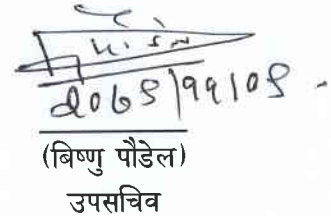 २०७९|११|०९
(बिष्णु पौडेल)
उपसचिव